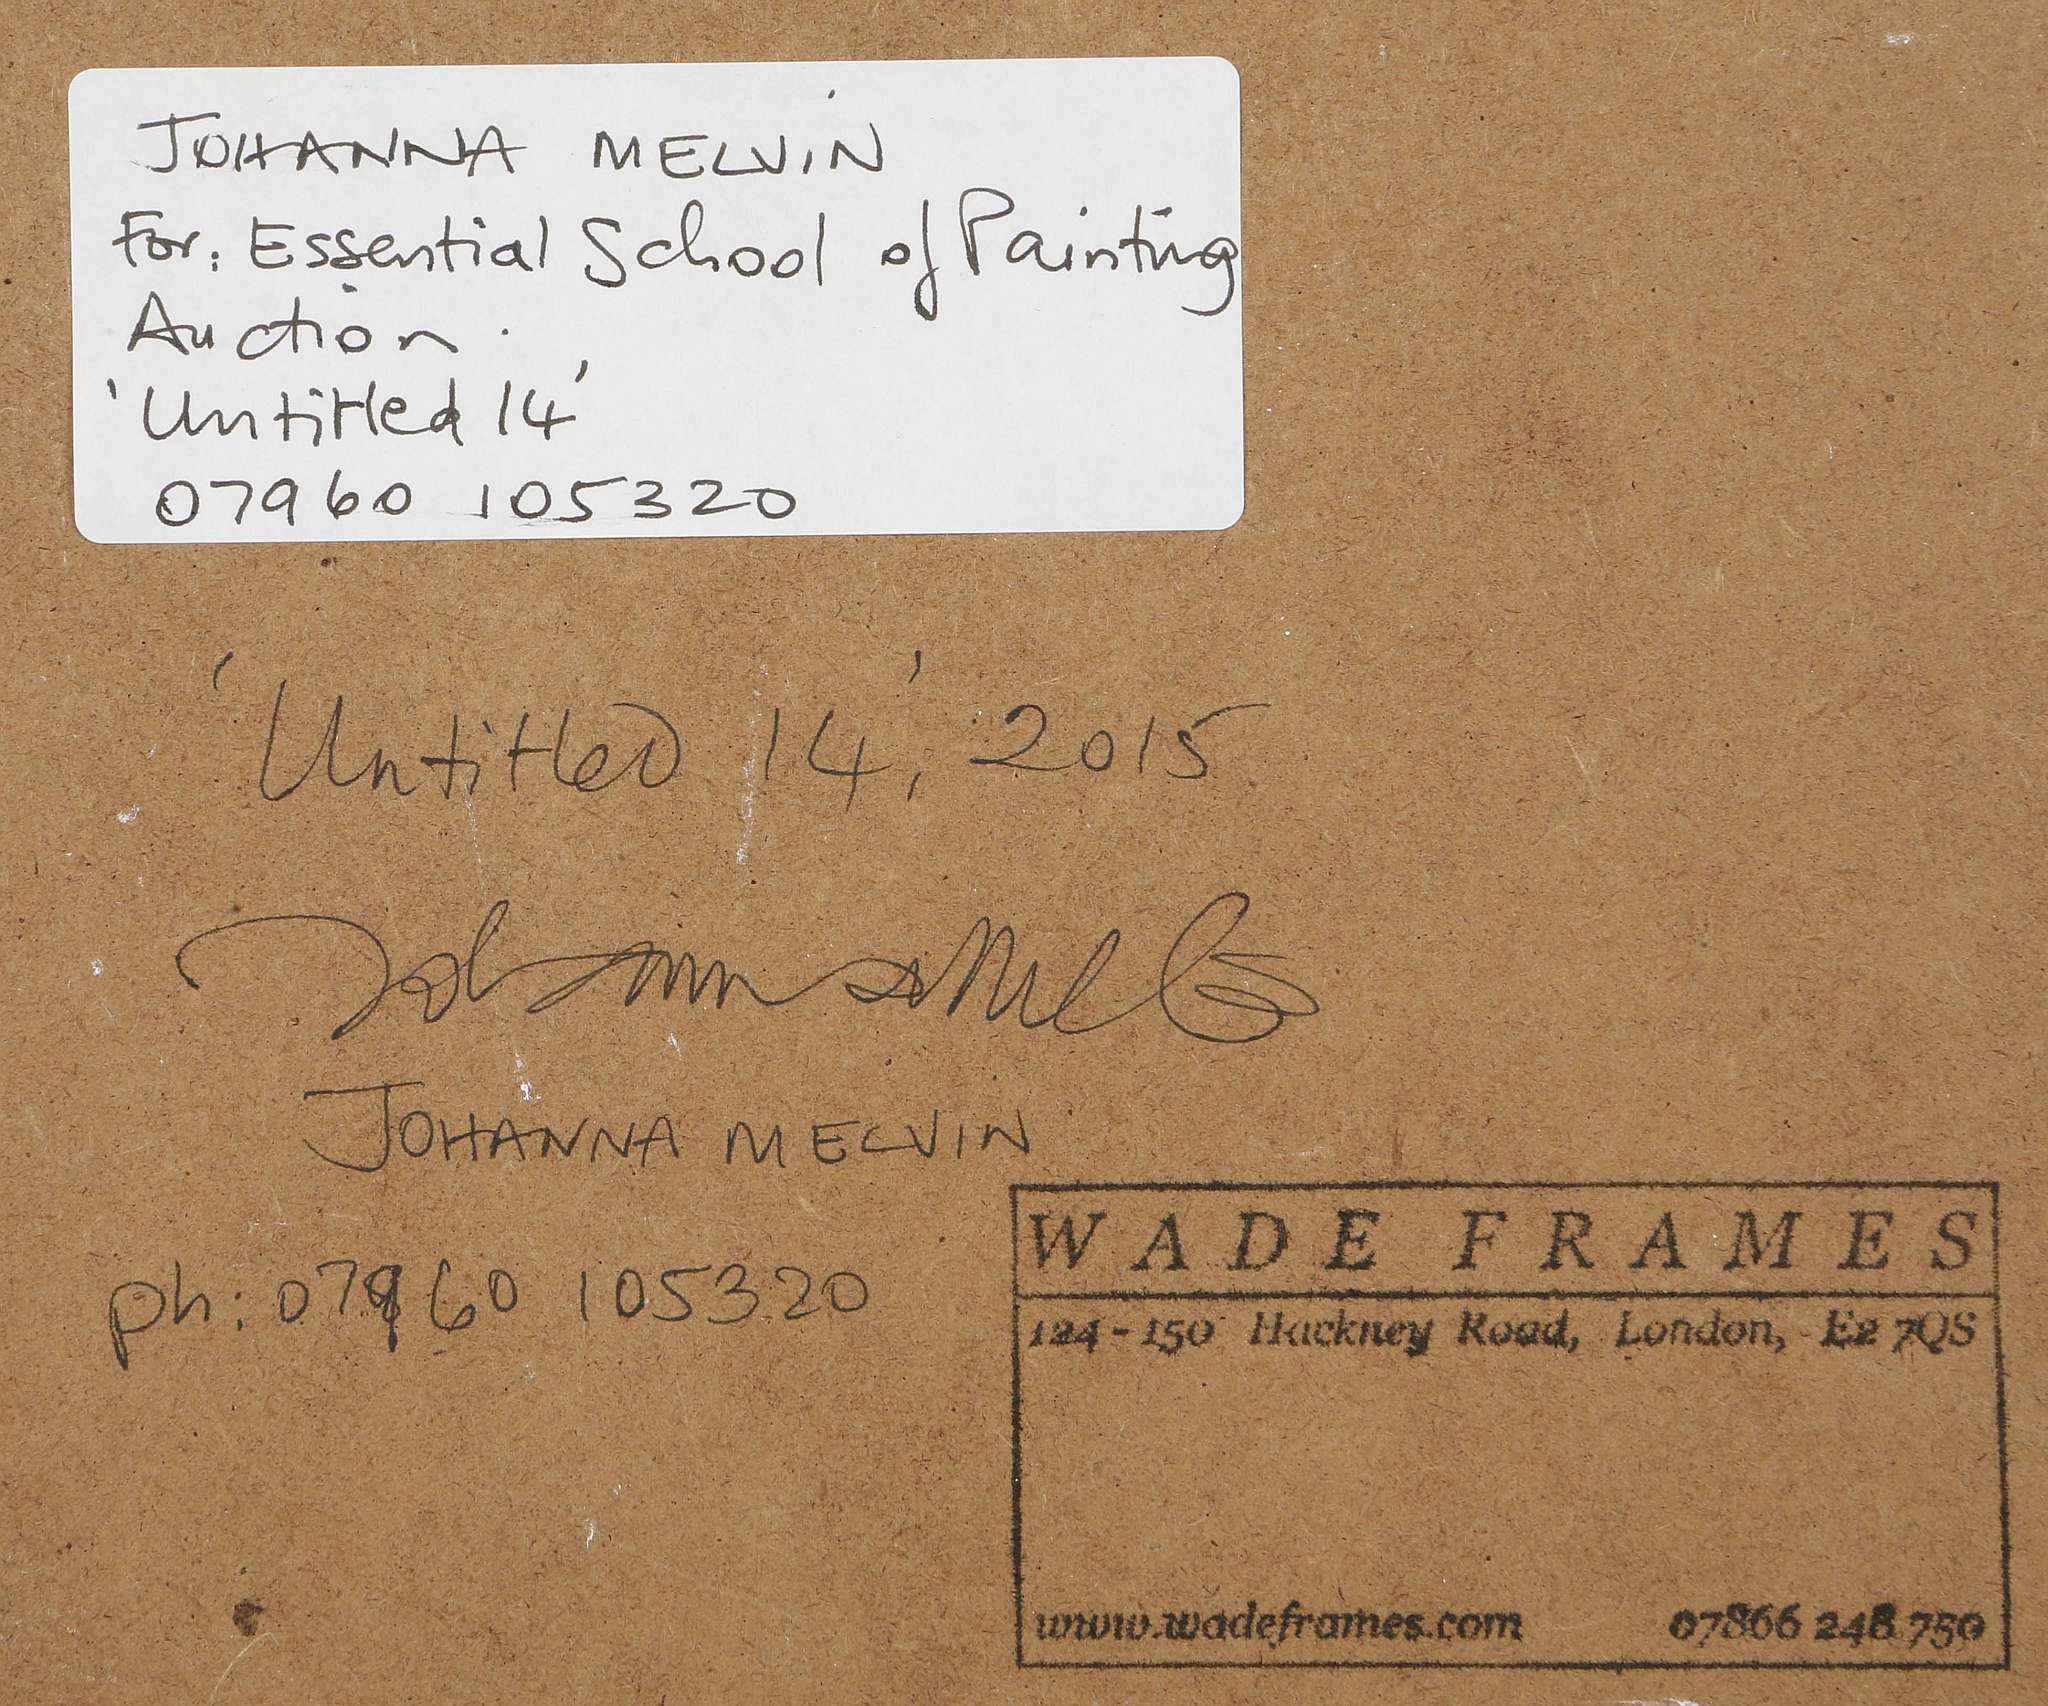 JOHANNA MELVIN
For: Essential School of Painting
Auction.
'Untitled 14'
07960 105320
'Untitled 14', 2015
Johanna Melvin
JOHANNA MELVIN
ph: 07960 105320
WADE FRAMES
124-150 Hackney Road, London, E2 7QS
www.wadeframes.com 07866 248 750